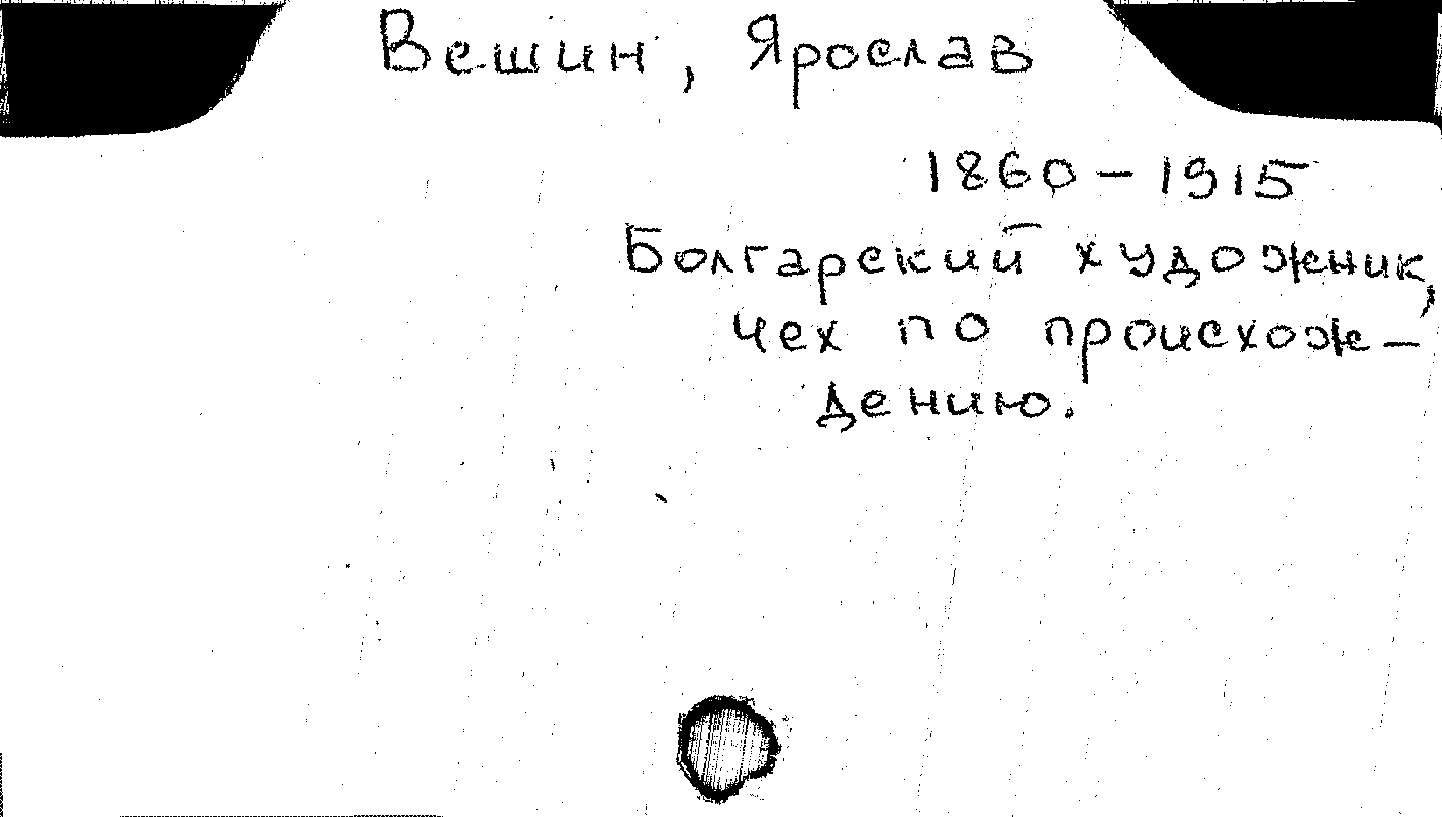 Вешин, Ярослав
1860-1915
Болгарский художник,
чех по происхож-
дению.